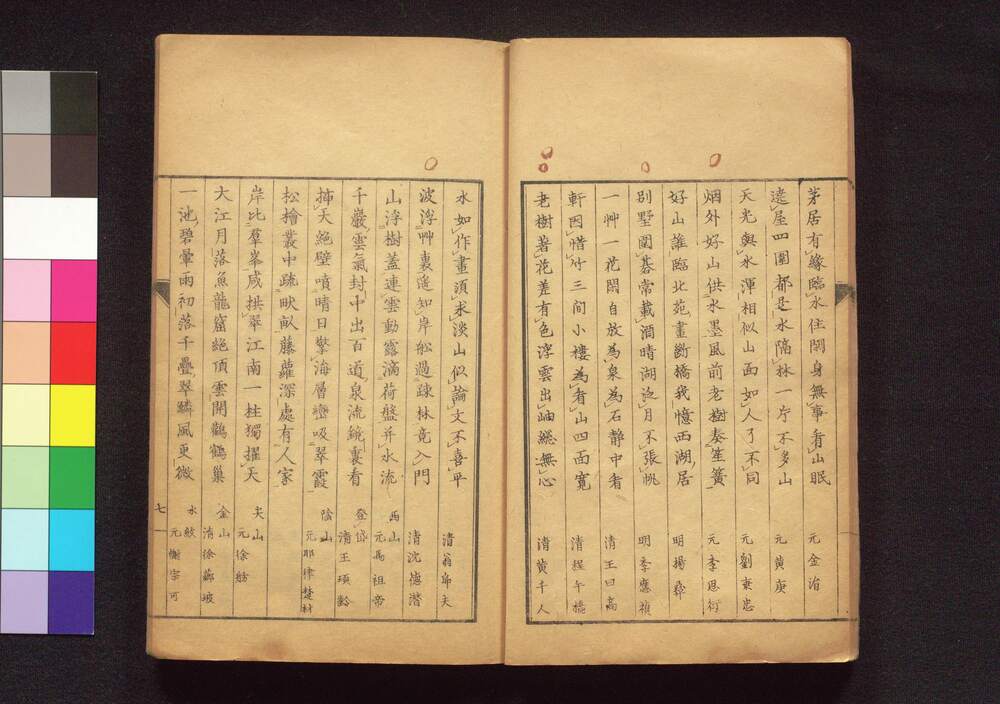 茅居有緣臨水住閒身無事看山眠 元金涓
遶屋四圍都是水隔林一片不多山 元黃庚
天光與水渾相似山面如人了不同 元劉秉忠
烟外好山供水墨風前老樹奏笙簧 元李思衍
好山誰臨北苑畫斷橋我憶西湖居 明楊彝
別墅圍碁常載酒晴湖泛月不張帆 明李應禎
一艸一花閒自放為泉為石靜中看 清王曰高
軒因惜竹三間小樓為看山四面寬 清程午橋
老樹著花差有色浮雲出岫總無心 清黃千人
水如作畫須求淡山似論文不喜平 清翁郎夫
波浮艸裏遥知岸船過疎林竟入門 清沈德潛
山浮樹蓋連雲動露滴荷盤并水流 西山 元馬祖帝
千巖雲氣封中出百道泉流鏡裏看 登岱 清王頊齡
揷天絕壁噴晴日擎海層巒吸翠霞 陰山 元耶律楚材
松檜叢中疏畎畝藤蘿深處有人家
岸比羣峯咸拱翠江南一柱獨擢天 夫山 元徐舫
大江月落魚龍窟絕頂雲開鸛鶴巢 金山 清徐蘭坡
一池碧暈雨初落千疊翠鱗風更微 水紋 元謝宗可
七一